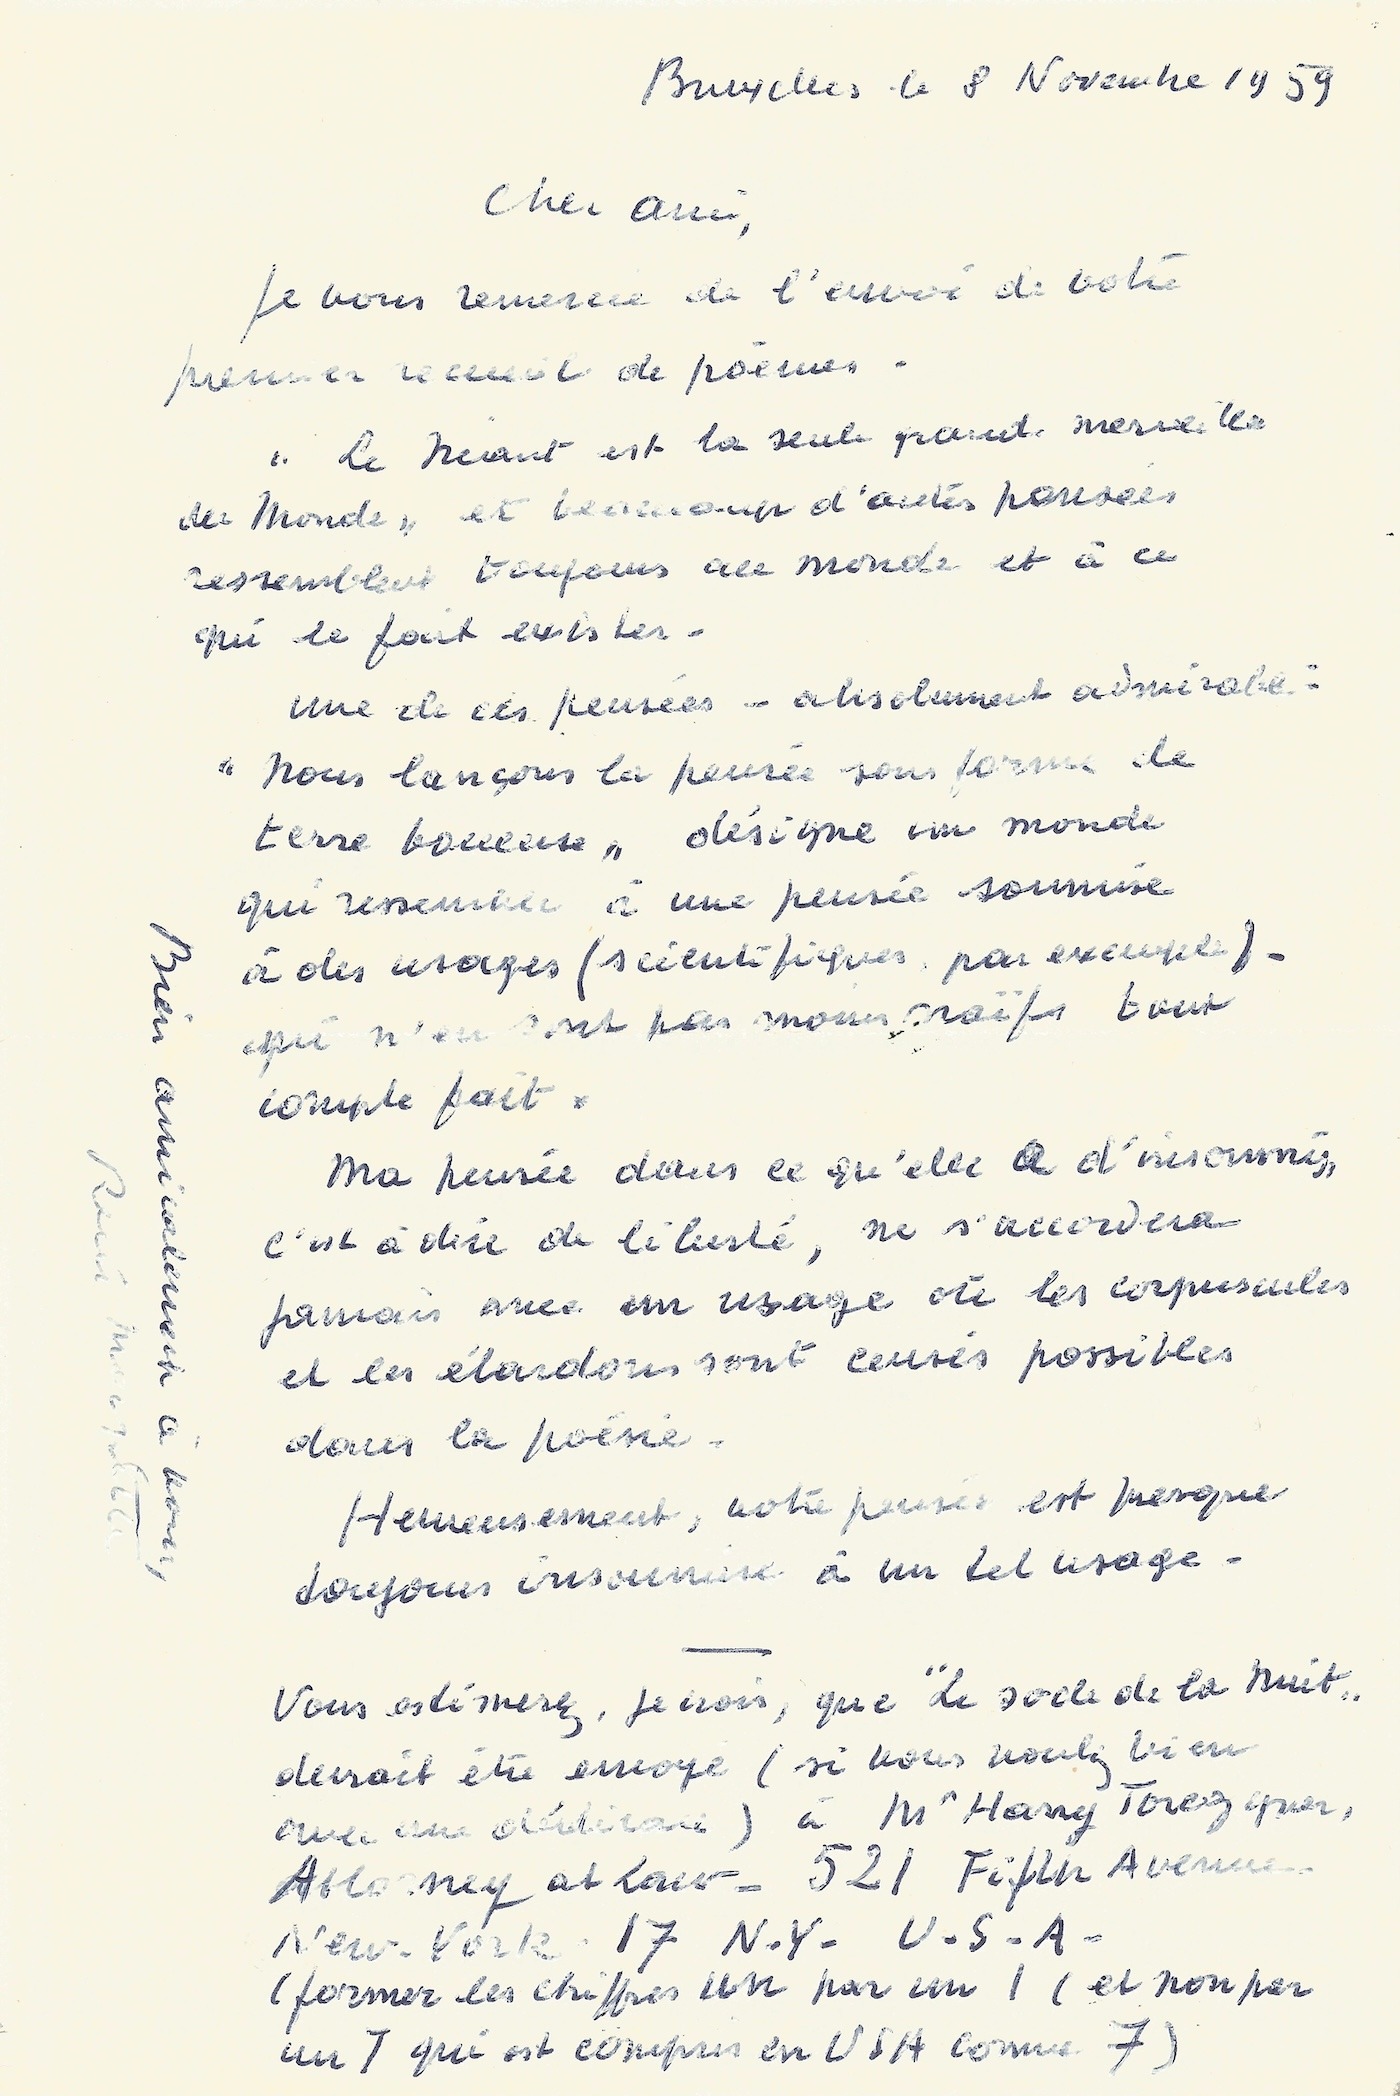 Bruxelles le 8 Novembre 1959
Cher ami,
Je vous remercie de l'envoi de votre
premier recueil de poèmes.
"Le Néant est la seule grande merveille
du Monde" et beaucoup d'autres pensées
ressemblent toujours au monde et à ce
qui le fait exister.
Une de ces pensées – absolument admirable :
"Nous lançons la pensée sous forme de
terre boueuse" désigne un monde
qui ressemble à une pensée soumise
à des usages (scientifiques, par exemple) –
qui n'en sont pas moins naïfs tout
compte fait.
Ma pensée dans ce qu'elle a d'insoumis,
c'est à dire de liberté, ne s'accordera
jamais avec un usage où les corpuscules
et les étardons sont censés possibles
dans la poésie.
Heureusement, votre pensée est presque
toujours insoumise à un tel usage.
Vous estimerez, je crois, que "Le socle de la Nuit"
devrait être envoyé (si vous voulez bien
avec une dédicace) à Mr Harry Torczyner,
Attorney at Law – 521 Fifth Avenue
New-York 17 N.Y. U.S.A.
(former les chiffres un par un 1 (et non par
un 1 qui est compris en USA comme 7)
Bien amicalement à vous,
René Magritte